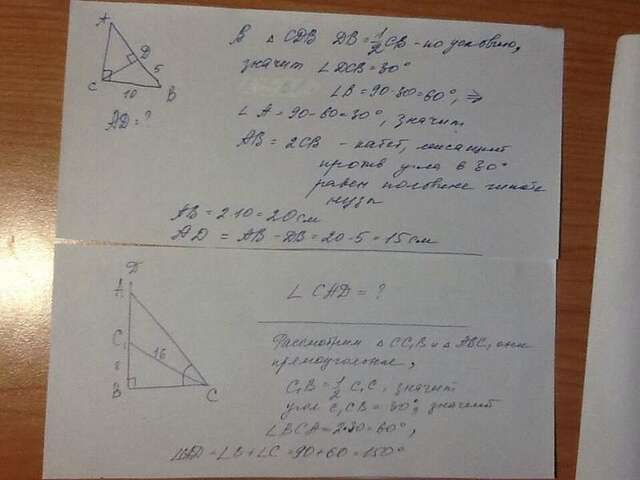 A
D
5
C
10
B
AD = ?
В △ CDB DB = 1/2 CB - по условию,
значит ∠ DCB = 30°
∠ B = 90 - 30 = 60°, ⇒
∠ A = 90 - 60 = 30°, значит
AB = 2CB - катет, лежащий
против угла в 30°
равен половине гипоте
нузы
AB = 2·10 = 20 см
AD = AB - DB = 20 - 5 = 15 см
D
A
C₁
16
8
B
C
∠ CAD = ?
Рассмотрим △ CC₁B и △ ABC, они
прямоугольные,
C₁B = 1/2 C₁C, значит
угол C₁CB = 30°, значит
∠BCA = 2·30 = 60°,
= ∠B + ∠C = 90 + 60 = 150°